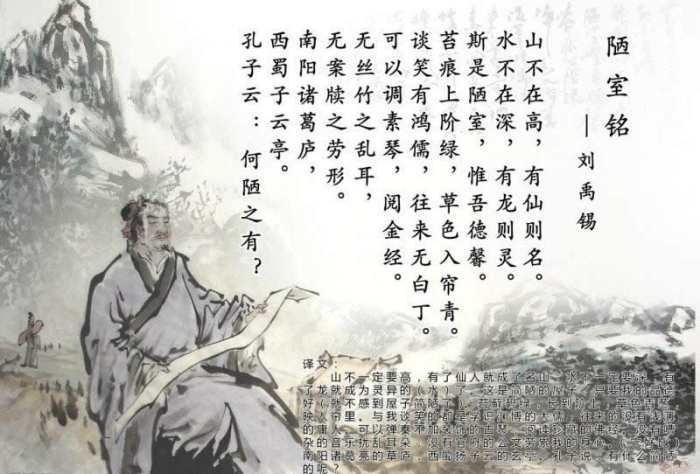 陋室铭
—刘禹锡
山不在高，有仙则名。
水不在深，有龙则灵。
斯是陋室，惟吾德馨。
苔痕上阶绿，草色入帘青。
谈笑有鸿儒，往来无白丁。
可以调素琴，阅金经。
无丝竹之乱耳，
无案牍之劳形。
南阳诸葛庐，
西蜀子云亭。
孔子云：何陋之有？
译文：
山不一定要高，有了仙人就成了名山。水不一定要深，有
了龙就成为灵异的（水）了。这是简陋的屋子，只要我的品德
好就不感到屋子简陋
映人帘里。与我谈笑的都是学识渊博的大儒，往来的没有浅薄
的庸人。可以弹奏不加
杂的音乐扰乱耳朵，没有官府的公文劳累我的身心。
南阳诸葛亮的草庐，西蜀扬子云的玄亭。孔子说：有什么简陋
的呢？